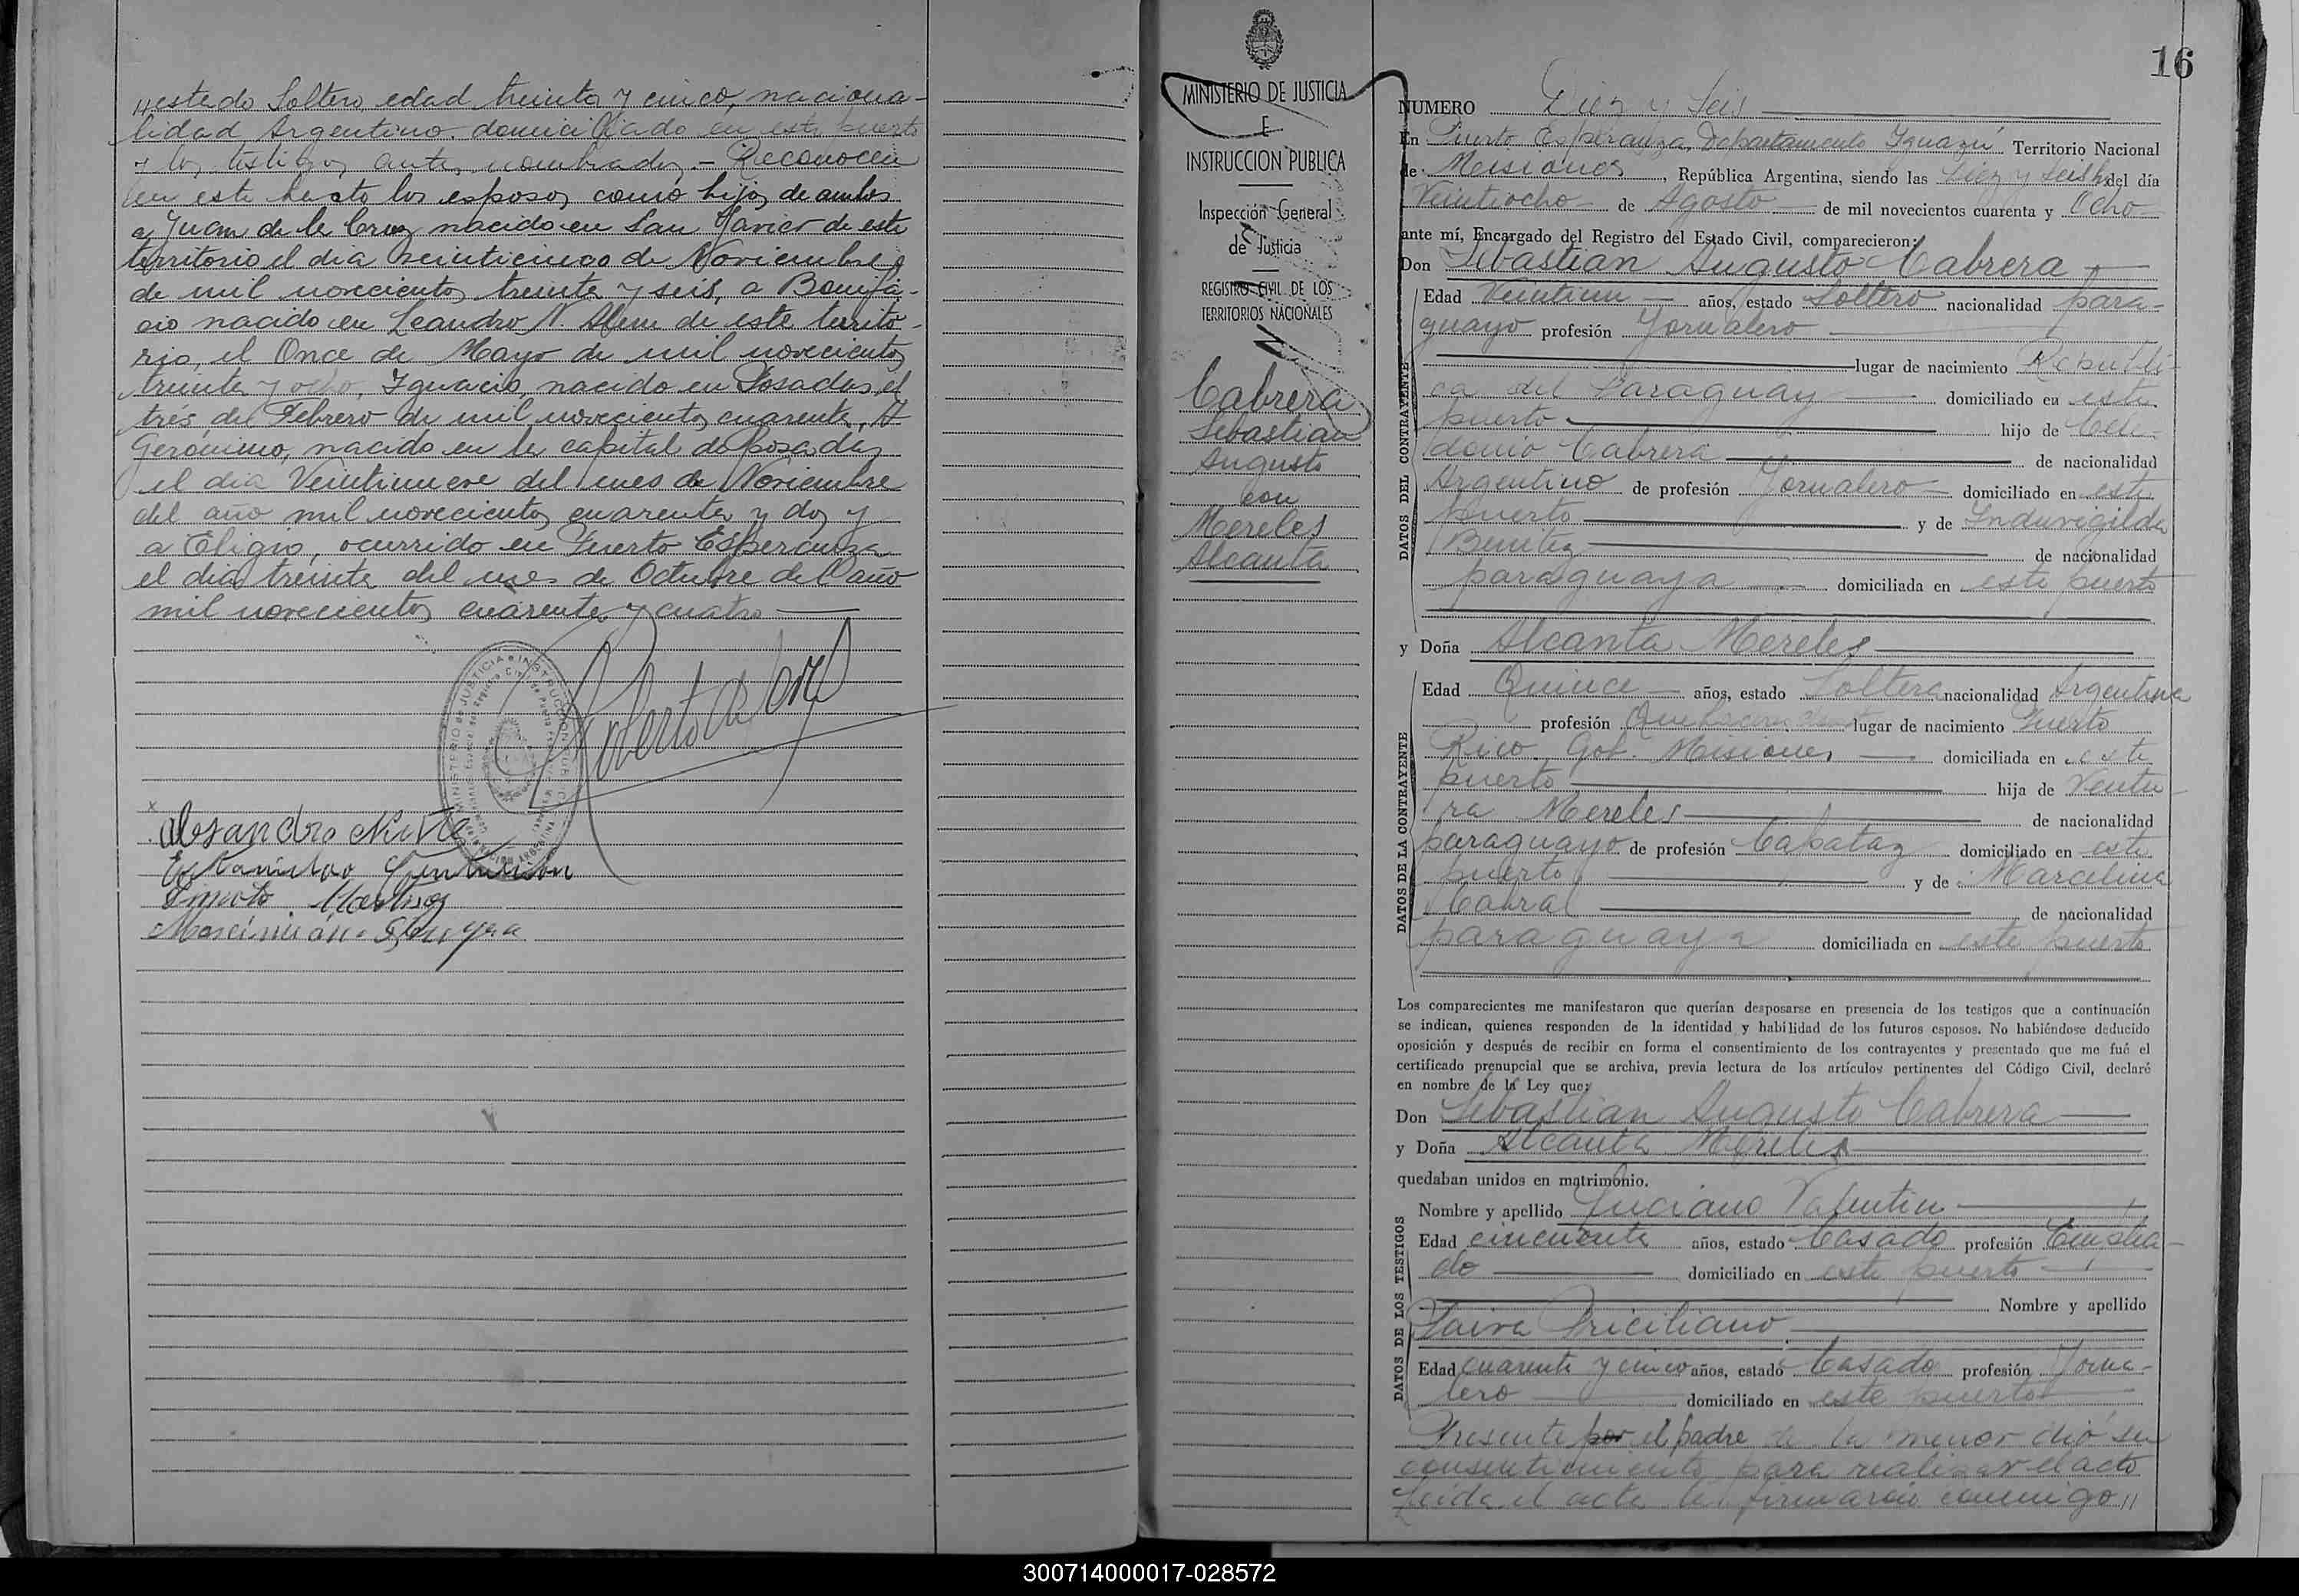 "estado Soltero, edad treinta y cinco, naciona-
lidad Argentino domiciliado en este puerto
y los testigos antes nombrados.- Reconocen
en este hacto los esposos como hijos de ambos
a Juan de la Cruz nacido en San Javier de este
territorio el dia veinticinco de Noviembre
de mil novecientos treinta y seis, a Bonifa-
cio nacido en Leandro N. Alem de este territo-
rio, el Once de Mayo de mil novecientos
treinta y ocho, Ignacio, nacido en Posadas el
tres del Febrero de mil novecientos cuarenta, A
Gerónimo, nacido en la capital de Posadas
el dia Veintinueve del mes de Noviembre
del año mil novecientos cuarenta y dos y
a Eligio, ocurrido en Puerto Esperanza
el dia treinta del mes de Octubre del año
mil novecientos cuarenta y cuatro
MINISTERIO DE JUSTICIA
E
INSTRUCCION PUBLICA
Inspección General
de Justicia
REGISTRO CIVIL DE LOS
TERRITORIOS NACIONALES
Cabrera
Sebastian
Augusto
con
Mereles
Alcanta
16
NUMERO Diez y Seis
En Puerto Esperanza, Departamento Iguazú Territorio Nacional
de Misiones, República Argentina, siendo las Diez y Seis hs del día
Veintiocho de Agosto de mil novecientos cuarenta y Ocho
ante mí, Encargado del Registro del Estado Civil, comparecieron:
Don Sebastian Augusto Cabrera
DATOS DEL CONTRAYENTE
Edad Veintiun años, estado Soltero nacionalidad para-
guayo profesión Jornalero
lugar de nacimiento Republi-
ca del Paraguay domiciliado en este
puerto hijo de Celi-
donio Cabrera de nacionalidad
Argentino de profesión Jornalero domiciliado en este
puerto y de Induvigilda
Benitez de nacionalidad
paraguaya domiciliada en este puerto
y Doña Alcanta Mereles
DATOS DE LA CONTRAYENTE
Edad Quince años, estado Soltera nacionalidad Argentina
profesión lugar de nacimiento Puerto
Rico Gob. Misiones domiciliada en este
puerto hija de Ventu-
ra Mereles de nacionalidad
paraguayo de profesión Capataz domiciliado en este
puerto y de Marcelina
Cabral de nacionalidad
paraguaya domiciliada en este puerto
Los comparecientes me manifestaron que querían desposarse en presencia de los testigos que a continuación
se indican, quienes responden de la identidad y habilidad de los futuros esposos. No habiéndose deducido
oposición y después de recibir en forma el consentimiento de los contrayentes y presentado que me fué el
certificado prenupcial que se archiva, previa lectura de los artículos pertinentes del Código Civil, declaré
en nombre de la Ley que:
Don Sebastian Augusto Cabrera
y Doña Alcanta Mereles
quedaban unidos en matrimonio.
DATOS DE LOS TESTIGOS
Nombre y apellido Luciano Valentin
Edad cincuenta años, estado Casado profesión Emplea-
do domiciliado en este puerto
Nombre y apellido
Paiva Priciliano
Edad cuarenta y cinco años, estado Casado profesión Jorna-
lero domiciliado en este puerto
Presente por el padre de la menor dió su
consentimiento para realizar el acto
Leida el acta la firmaron conmigo "
300714000017-028572